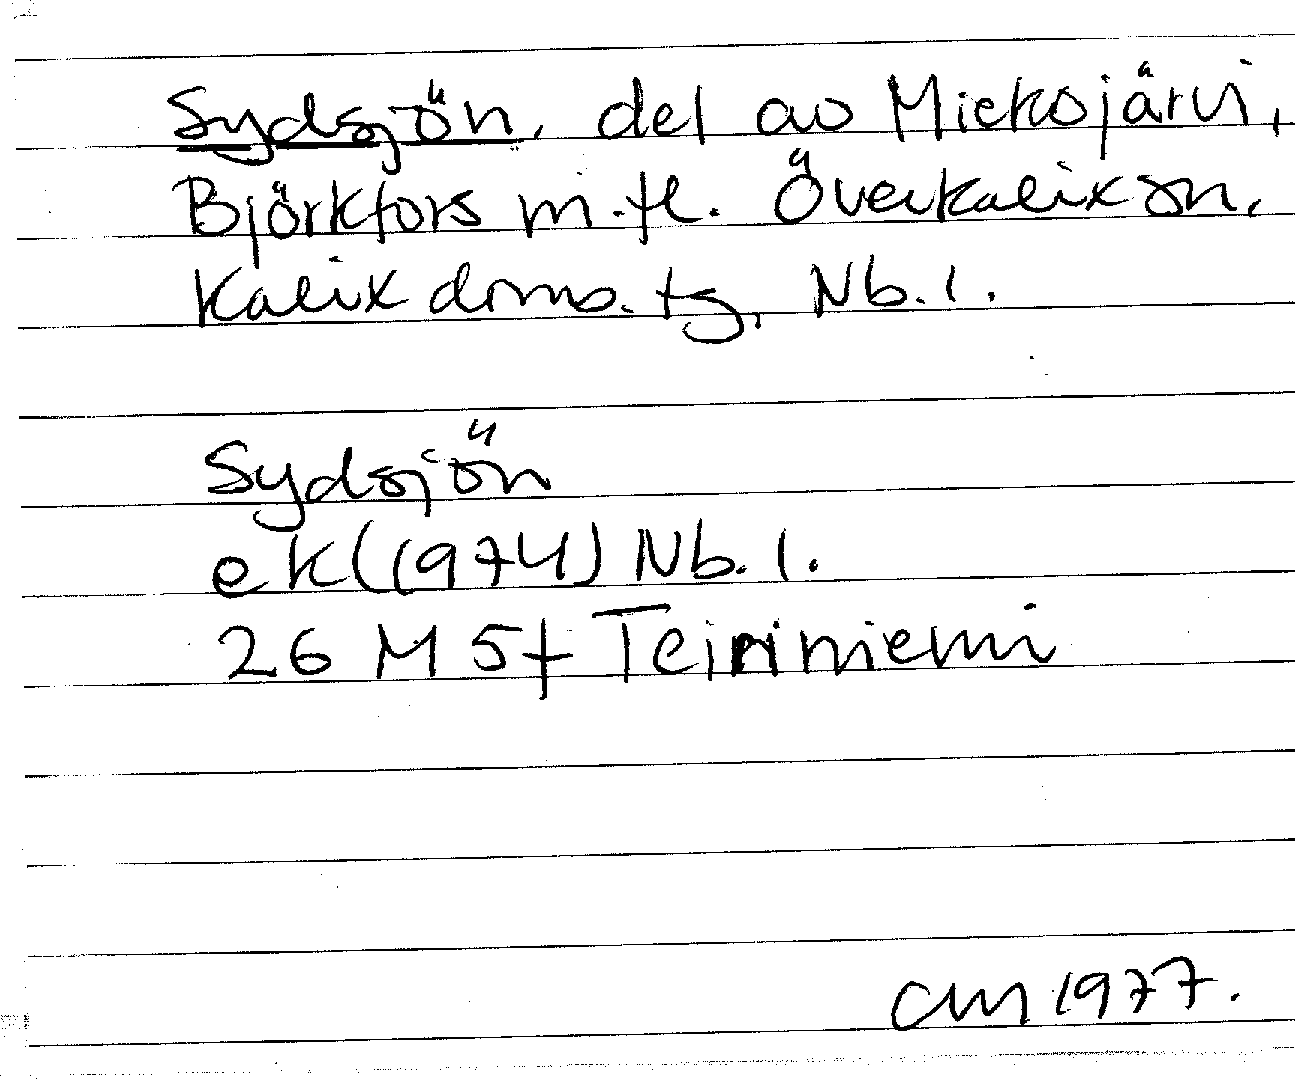 Sydsjön, del av Miekojärvi,
Björkfors m.fl. Överkalix sn,
Kalix doms. tg, Nb. l.
Sydsjön
ek (1974) Nb. l.
26 M 5f Teiriniemi
CM 1977.